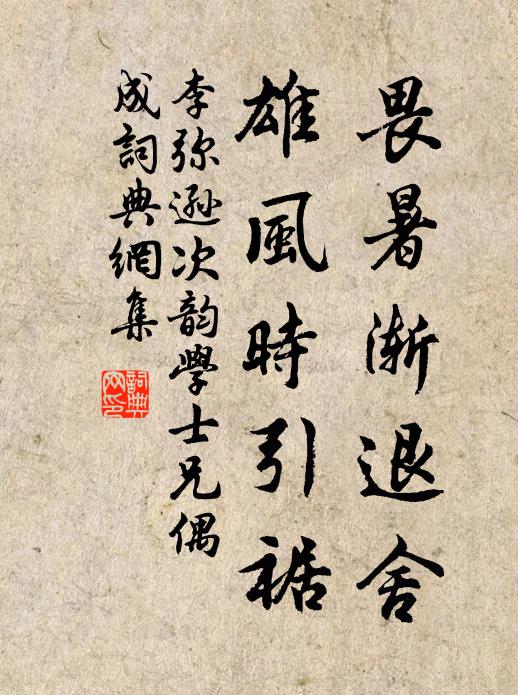 畏暑漸退舍
雄風時引裾
李弥遜次韵學士兄偶
成詞典網集
詞典
网印